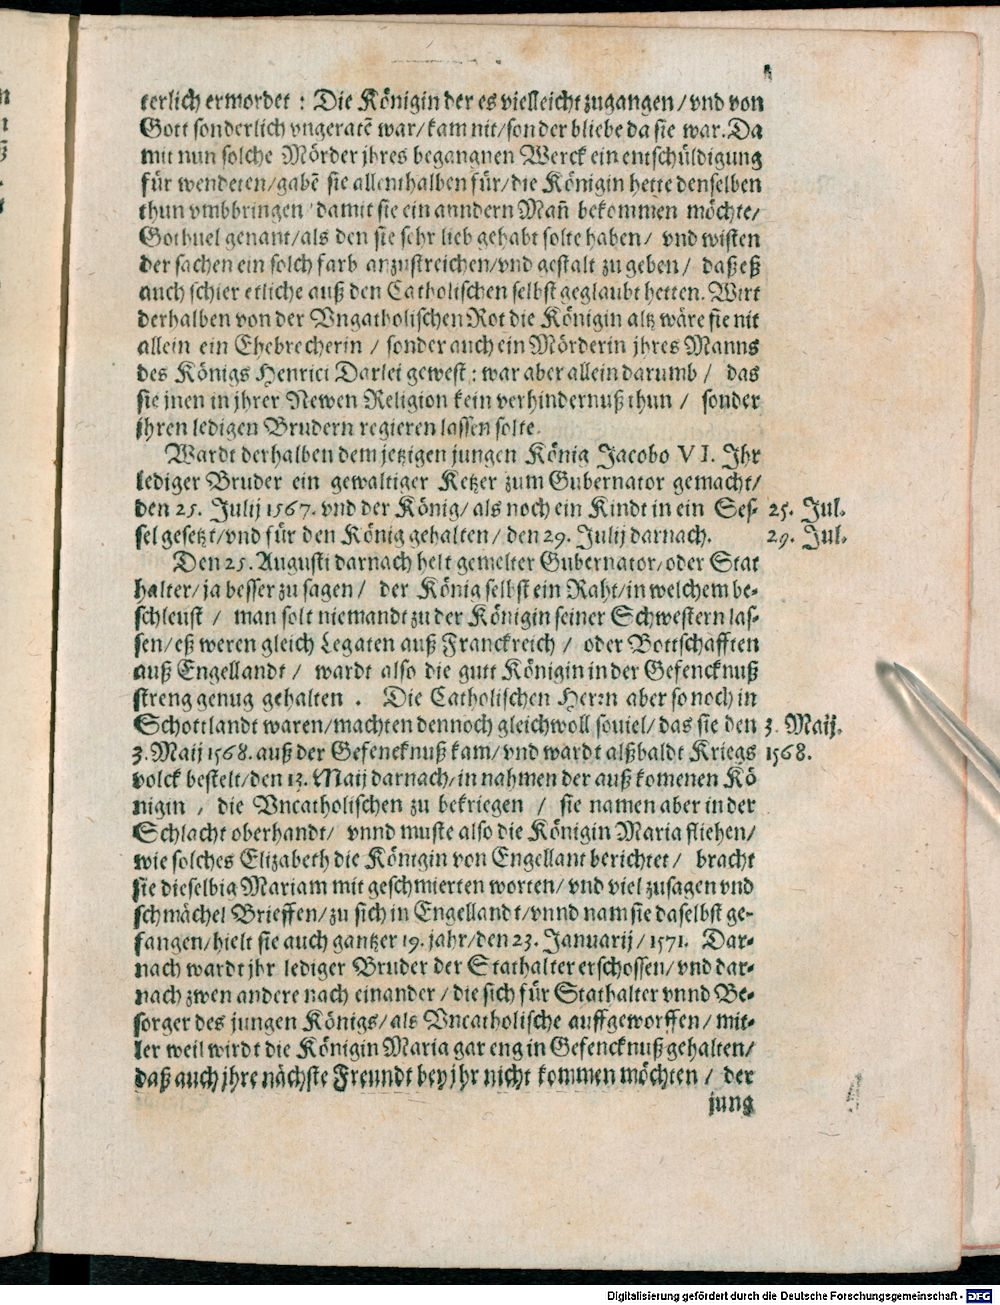 terlich ermordet : Die Königin der es vielleicht zugangen / vnd von
Gott sonderlich vngeratē war / kam nit / sonder bliebe da sie war. Da
mit nun solche Mörder jhres begangnen Werck ein entschüldigung
für wendeten / gabē sie allenthalben für / die Königin hette denselben
thun vmbbringen / damit sie ein anndern Mañ bekommen möchte /
Gothuel genant / als den sie sehr lieb gehabt solte haben / vnd wisten
der sachen ein solch farb anzustreichen / vnd gestalt zu geben / daß eß
auch schier etliche auß den Catholischen selbst geglaubt hetten. Wirt
derhalben von der Vngatholischen Rot die Königin altz wäre sie nit
allein ein Ehebrecherin / sonder auch ein Mörderin jhres Manns
des Königs Henrici Darlei gewest : war aber allein darumb / das
sie jnen in jhrer Newen Religion kein verhindernuß thun / sonder
jhren ledigen Brudern regieren lassen solte.
Wardt derhalben dem jetzigen jungen König Jacobo VI. Jhr
lediger Bruder ein gewaltiger Ketzer zum Gubernator gemacht /
den 25. Julij 1567. vnd der König / als noch ein Kindt in ein Ses-
25. Jul.
sel gesetzt / vnd für den König gehalten / den 29. Julij darnach.
29. Jul.
Den 25. Augusti darnach helt gemelter Gubernator / oder Stat
halter / ja besser zu sagen / der König selbst ein Raht / in welchem be-
schleust / man solt niemandt zu der Königin seiner Schwestern las-
sen / eß weren gleich Legaten auß Franckreich / oder Bottschafften
auß Engellandt / wardt also die gutt Königin in der Gefencknuß
streng genug gehalten . Die Catholischen Herrn aber so noch in
Schottlandt waren / machten dennoch gleichwoll souiel / das sie den
3. Maij.
3. Maij 1568. auß der Gefencknuß kam / vnd wardt alßbaldt Kriegs
1568.
volck bestelt / den 13. Maij darnach / in nahmen der auß komenen Kö
nigin / die Vncatholischen zu bekriegen / sie namen aber in der
Schlacht oberhandt / vnnd muste also die Königin Maria fliehen /
wie solches Elizabeth die Königin von Engellant berichtet / bracht
sie dieselbig Mariam mit geschmierten worten / vnd viel zusagen vnd
schmächel Brieffen / zu sich in Engellandt / vnnd nam sie daselbst ge-
fangen / hielt sie auch gantzer 19. jahr / den 23. Januarij / 1571. Dar-
nach wardt jhr lediger Bruder der Stathalter erschossen / vnd dar-
nach zwen andere nach einander / die sich für Stathalter vnnd Be-
sorger des jungen Königs / als Vncatholische auffgeworffen / mit-
ler weil wirdt die Königin Maria gar eng in Gefencknuß gehalten /
daß auch jhre nächste Freundt bey jhr nicht kommen möchten / der
jung
Digitalisierung gefördert durch die Deutsche Forschungsgemeinschaft - DFG